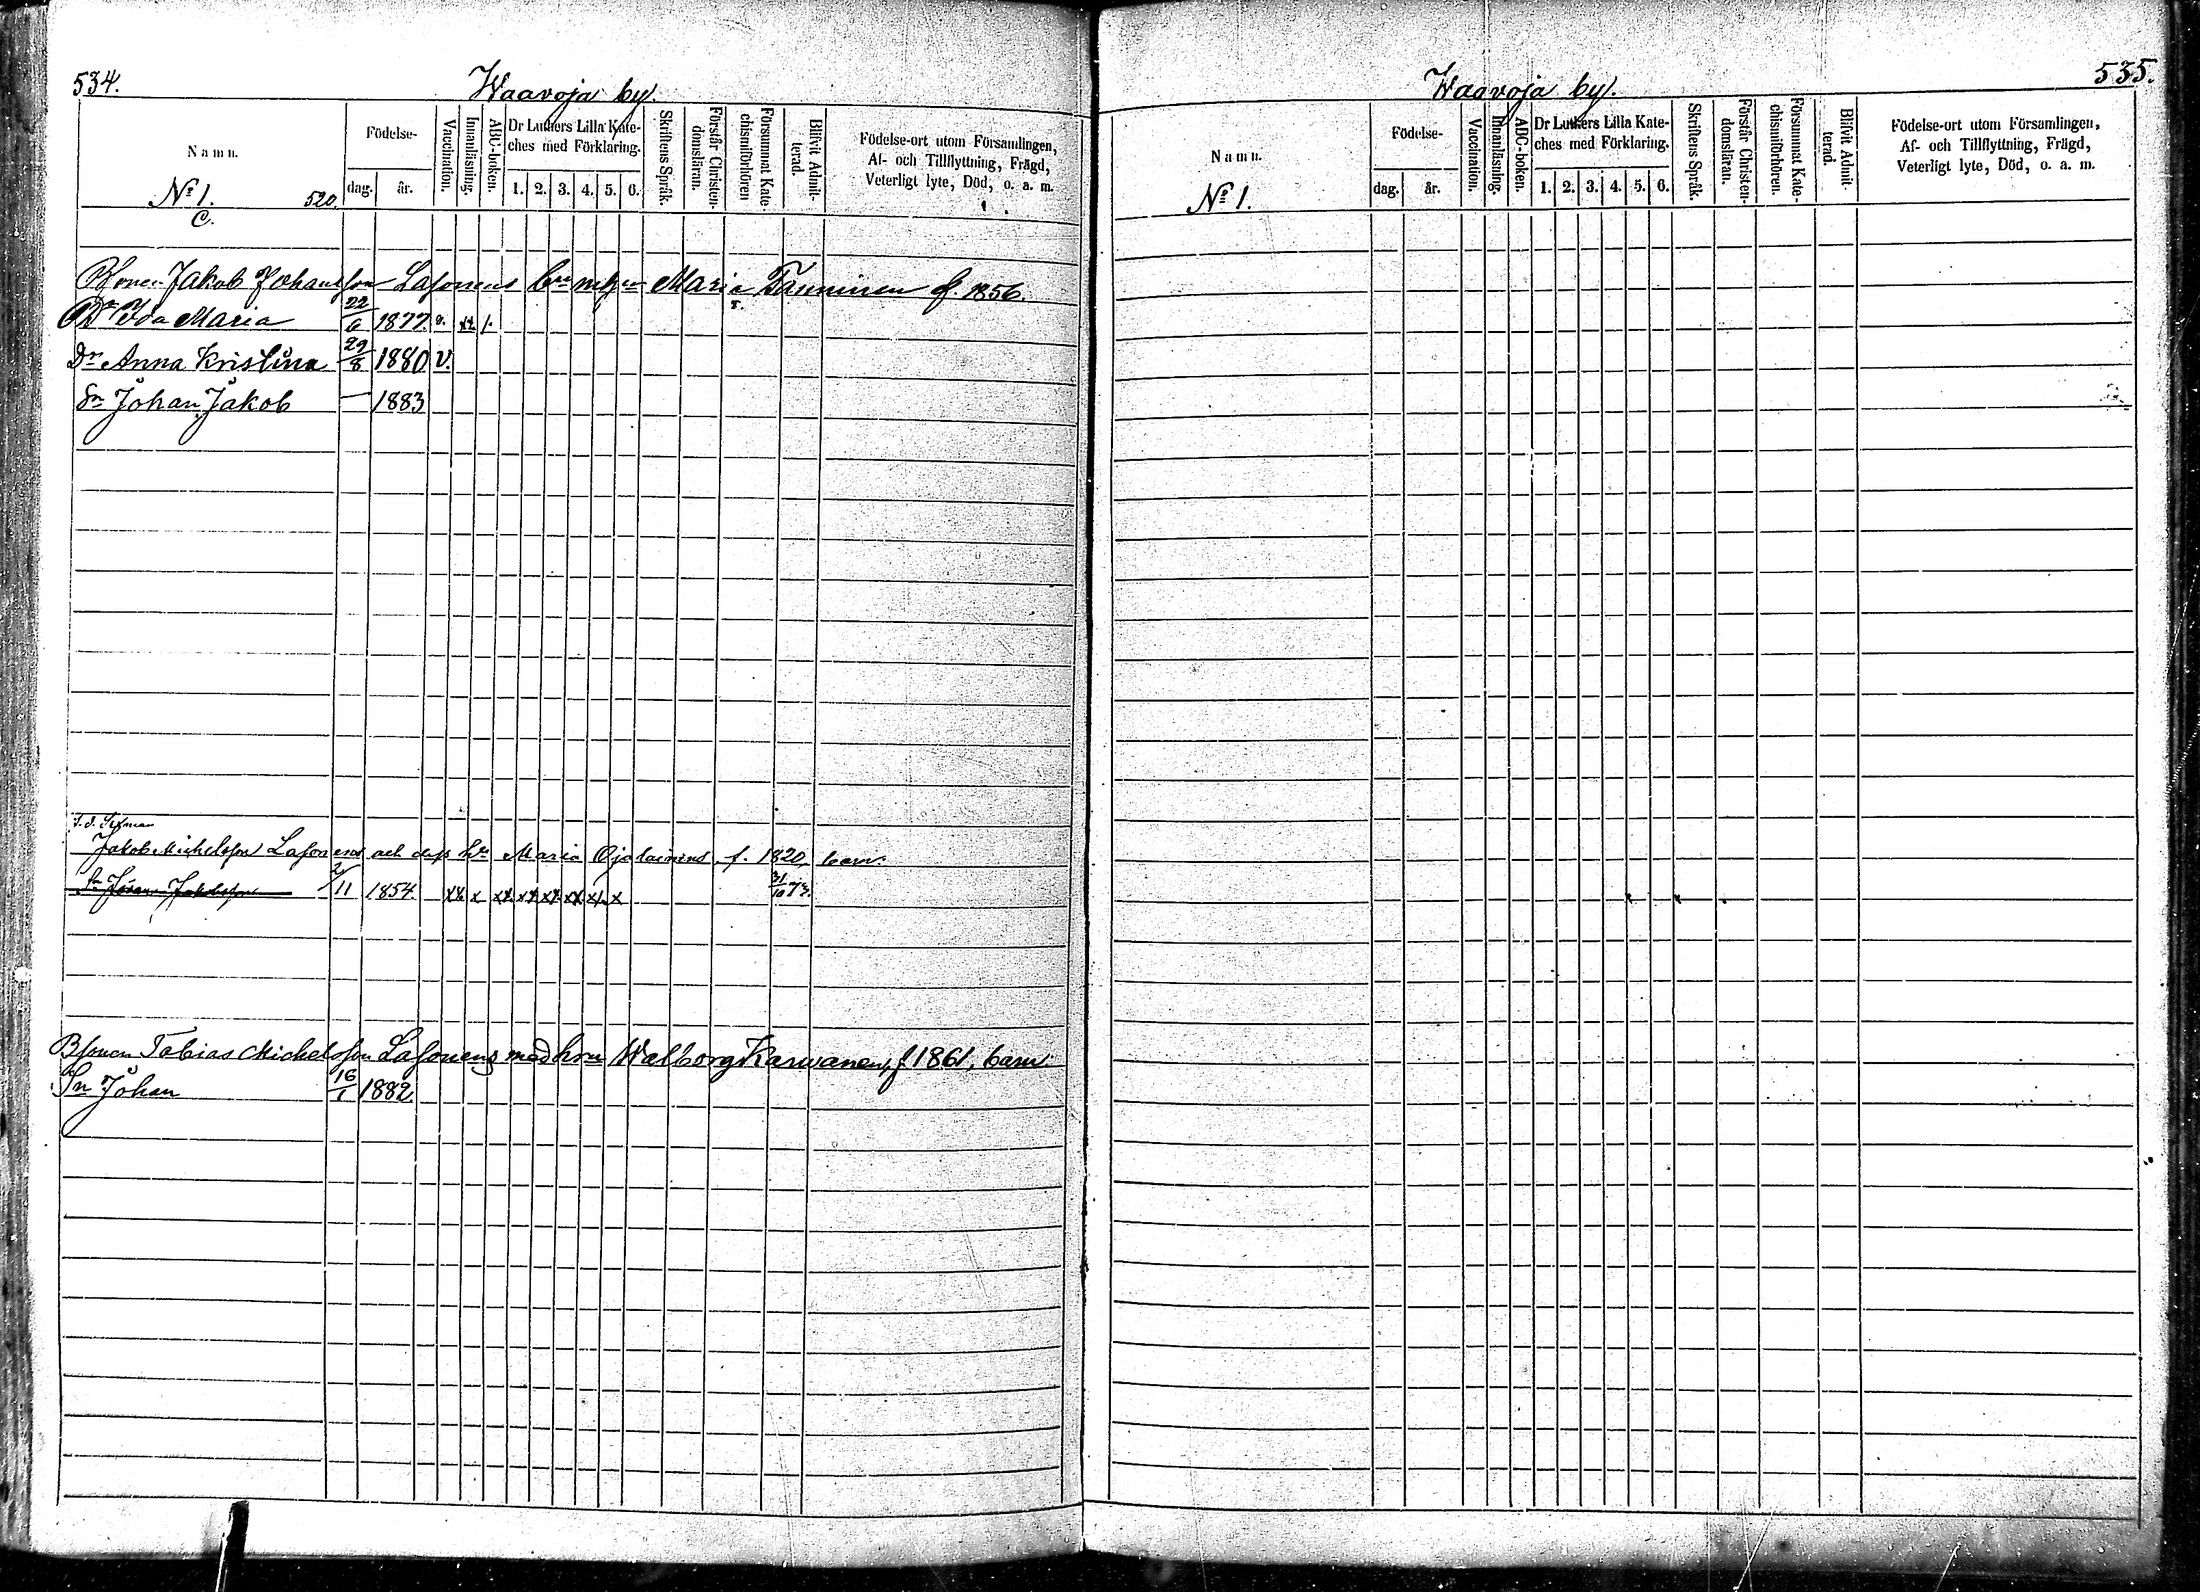 534.
Waavoja by.
Namn.
Födelse-
dag.
år.
Vaccination.
Innanläsning.
ABC-boken.
Dr Luthers Lilla Kate-
ches med Förklaring.
1. 2. 3. 4. 5. 6.
Skriftens Språk.
Förstår Christen-
domsläran.
Försummat Kate-
chismiförhören
Blifvit Admit-
terad.
Födelse-ort utom Församlingen,
Af- och Tillflyttning, Frägd,
Veterligt lyte, Död, o. a. m.
No 1. 520.
C.
Bonen Jakob Johansson Lasonens Maria Tanninen f. 1856.
Dr Ida Maria 22/6 1877. v. x/. /.
Dr Anna Kristina 29/8 1880 v.
Sn Johan Jakob — 1883
Jakob Michelsson Lasonens och dess hu Maria Ojalainens, f. 1820, barn:
Sn Jakobsson /11 1854. 31/10 73.
Bsonen Tobias Michelsson Lasonens med hru Walborg Karwanen, f. 1861, barn:
Sn Johan 16/1 1882
535.
Waavoja by.
Namn.
Födelse-
dag.
år.
Vaccination.
Innanläsning.
ABC-boken.
Dr Luthers Lilla Kate-
ches med Förklaring.
1. 2. 3. 4. 5. 6.
Skriftens Språk.
Förstår Christen-
domsläran.
Försummat Kate-
chismiförhören.
Blifvit Admit-
terad.
Födelse-ort utom Församlingen,
Af- och Tillflyttning, Frägd,
Veterligt lyte, Död, o. a. m.
No 1.